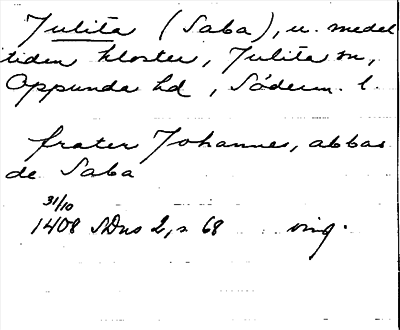 Julita (Saba), u. medel
tiden kloster, Julita sn,
Oppunda hd, Söderm. l.
frater Johannes, abbas
de Saba
31/10
1408 SDns 2, s 68 orig.